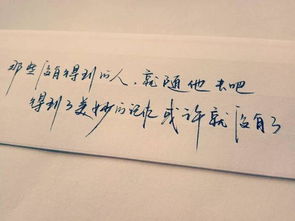 那些没有得到的人.就随他去吧
得到了美妙的记忆或许就没有了